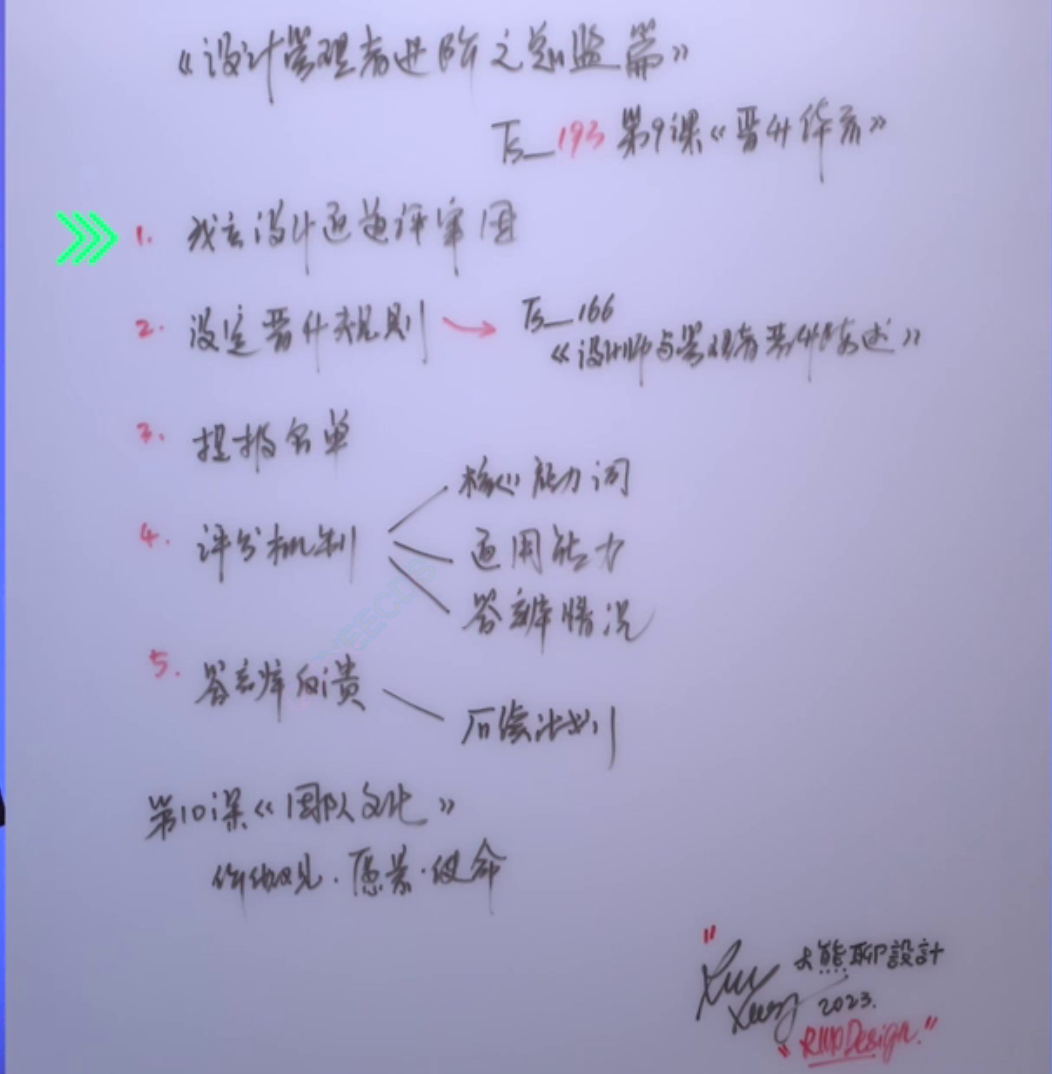 《设计管理者进阶之总监篇》
Ts_193 第9课《晋升体系》
1. 成立设计通道评审团
2. 设定晋升规则 → Ts_166
《设计师与管理者晋升陈述》
3. 提报名单
4. 评分机制
核心能力词
通用能力
答辩情况
5. 答辩反馈
后续计划
第10课《团队文化》
价值观·愿景·使命
大熊聊設計
2023.
"RMDesign."